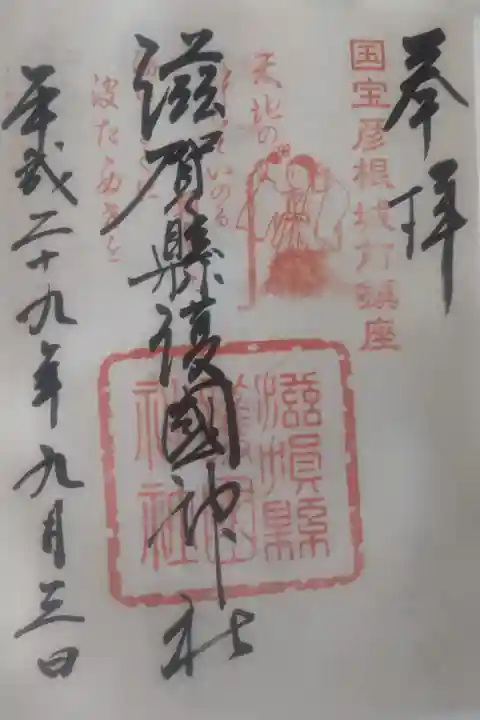 奉拝
国宝彦根城 鎮座
天地の
いのる
波たたぬ世を
滋賀縣護國神社
滋賀縣
護國
神社
平成二十九年九月三日